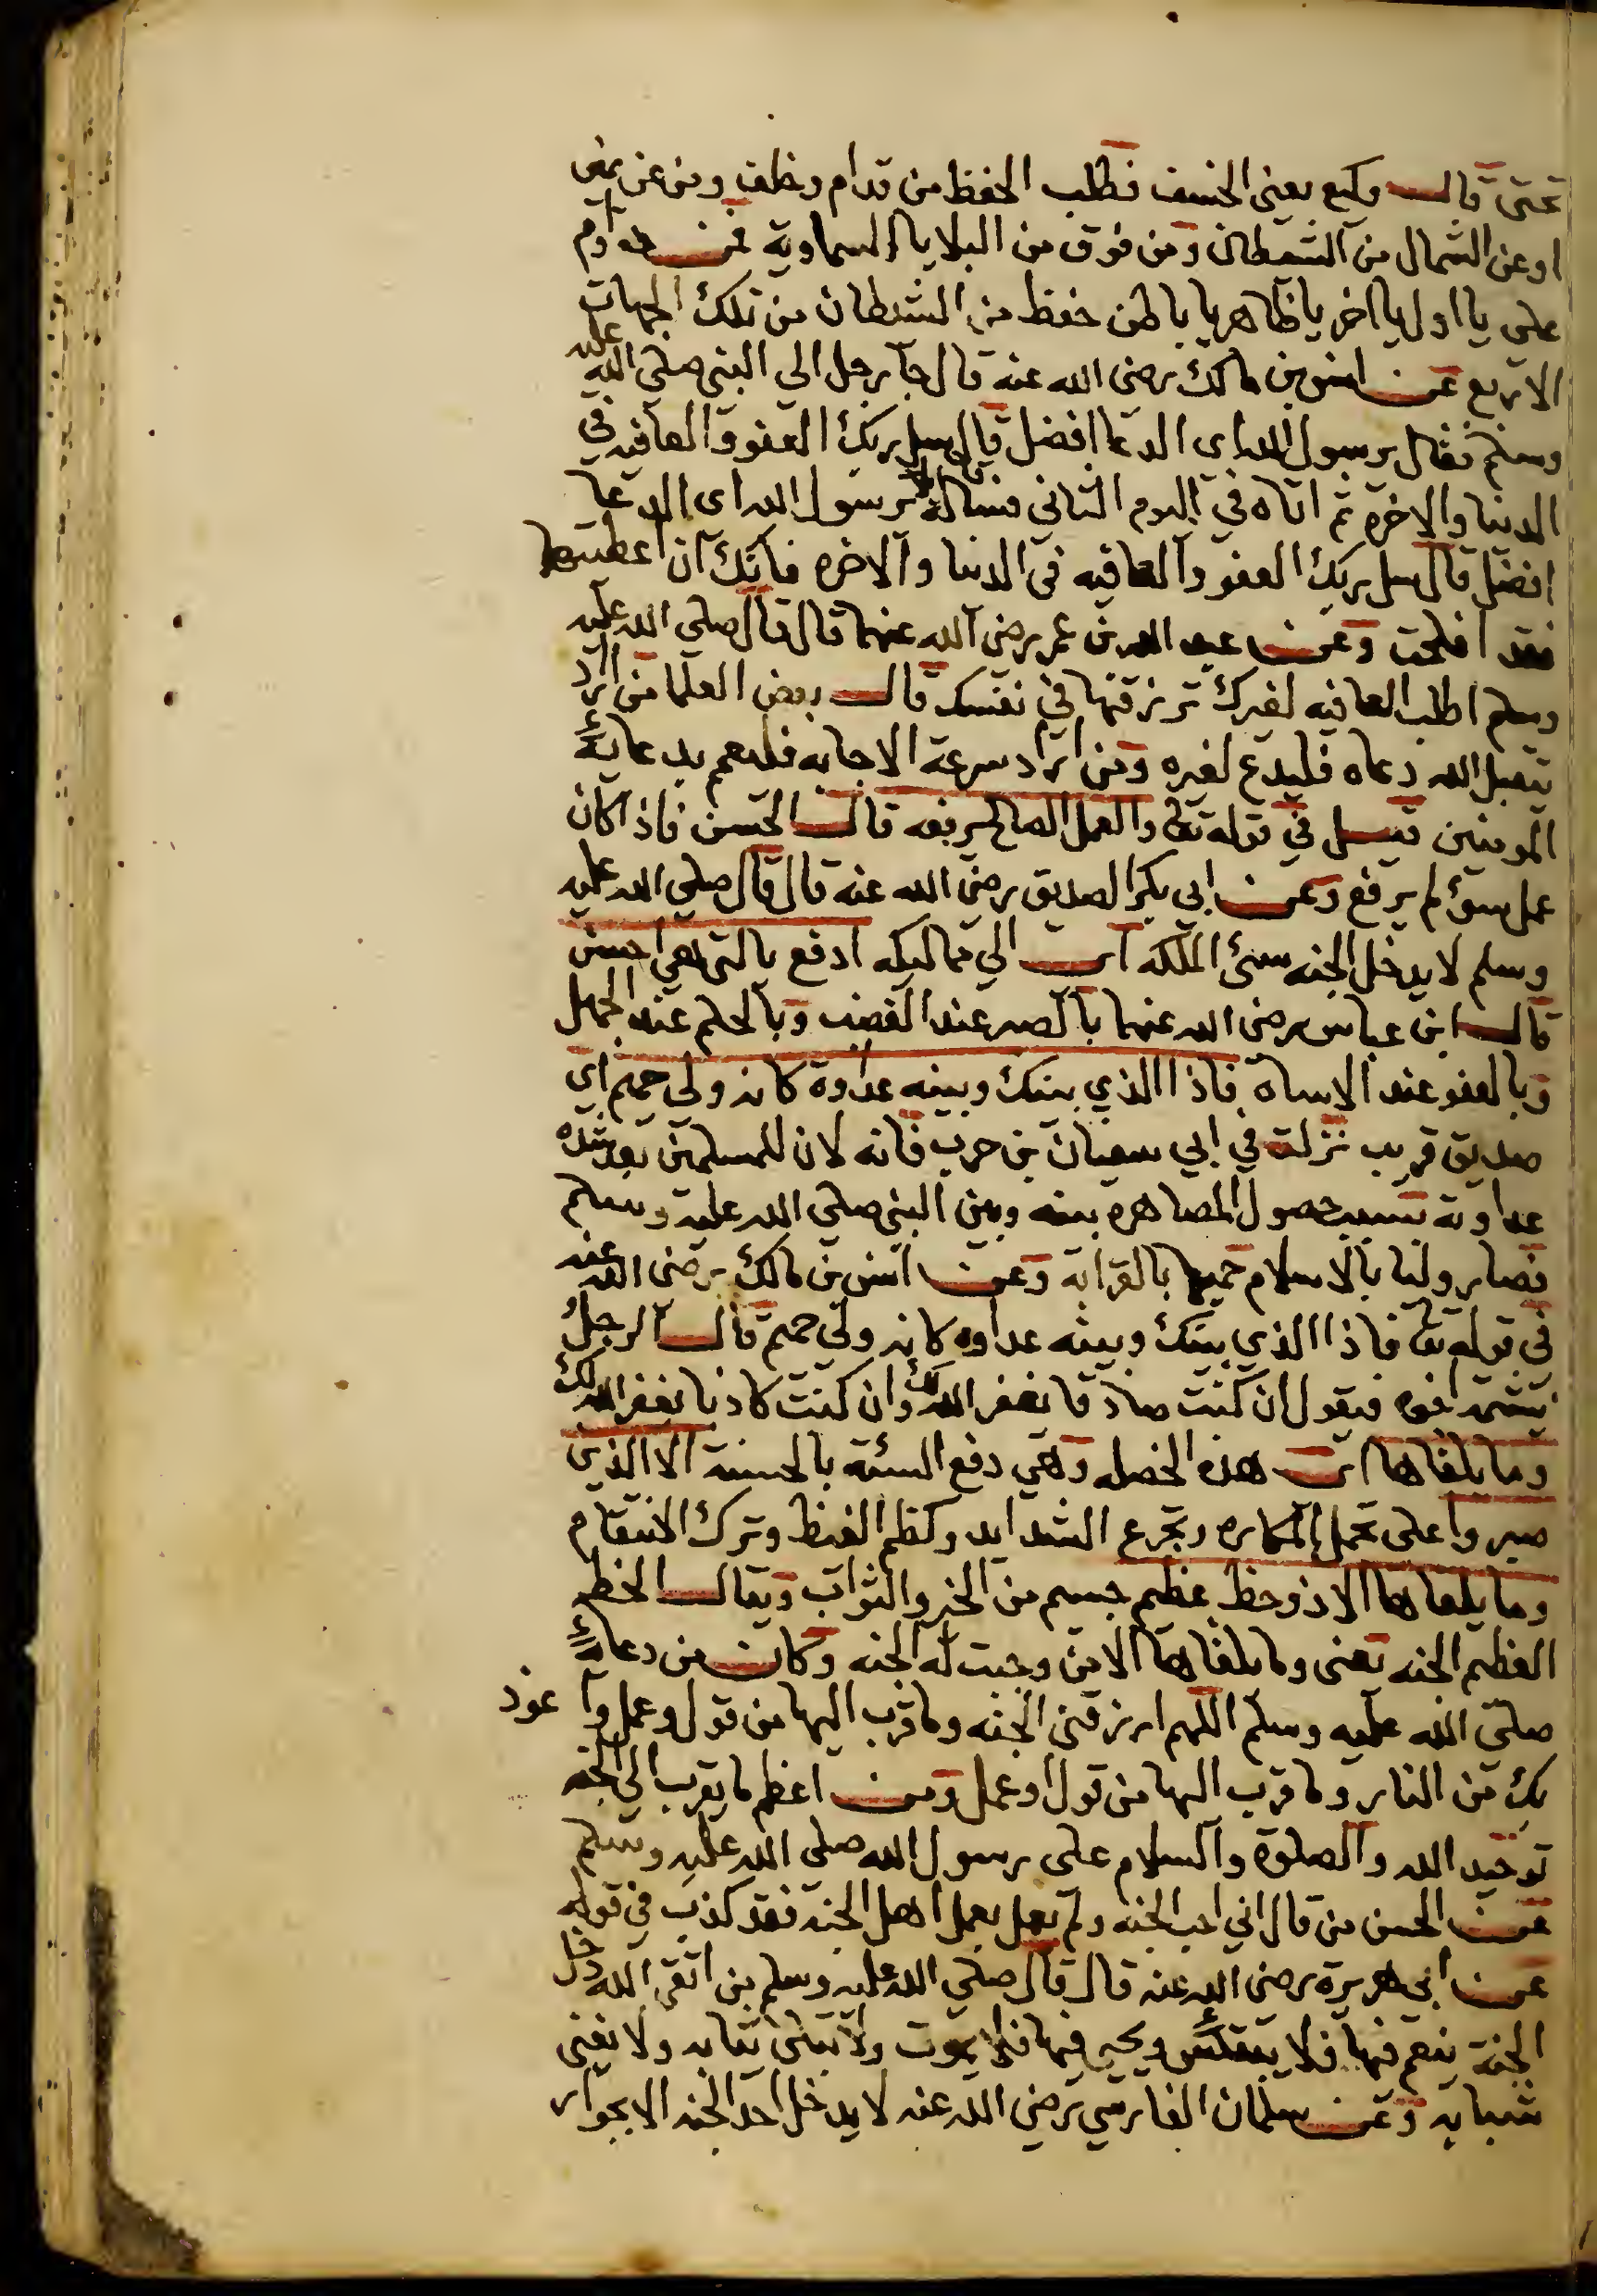 تحتى قال وكيع يعنى الخسف فطلب الحفظ من قدام وخلف ومن عن يمين
او عن الشمال من الشيطان ومن فوق من البلايا السماوية فمن داوم
على يا اول يا اخر يا ظاهر يا باطن حفظ من الشيطان من تلك الجهات
الاربع عن انس بن مالك رضى الله عنه قال جآ رجل الى النبى صلى الله عليه
وسلم فقال يرسول الله اى الدعا افضل قال سل ربك العفو والعافيه فى
الدنيا والاخره ثم اتاه فى اليوم الثانى فساله يرسول الله اى الدعا
افضل قال سل ربك العفو والعافيه فى الدنيا والاخره فانك ان اعطيتها
فقد افلحت وعن عبد الله بن عمر رضى الله عنهما قال قال صلى الله عليه
وسلم اطلب العافيه لغيرك ترزقها فى نفسك قال بعض العلما من اراد
يتقبل الله دعاه فليدع لغيره ومن اراد سرعة الاجابه فليعم بدعائه
المومنين قيل فى قوله تعا والعمل الصالح يرفعه قال الحسن فاذا كان
عمل سوء لم يرفع وعن ابى بكر الصديق رضى الله عنه قال قال صلى الله عليه
وسلم لا يدخل الجنه سىئ الملكه اى الى مماليكه ادفع بالتى هى احسن
قال ابن عباس رضى الله عنهما بالصبر عند الغضب وبالحلم عند الجهل
وبالعفو عند الاساه فاذا الذي بينك وبينه عداوة كانه ولى حميم اى
صديق قريب نزلت فى ابى سفيان بن حرب فانه لان للمسلمين بعد شده
عداوته بسبب حصول المصاهره بينه وبين النبى صلى الله عليه وسلم
فصار وليا بالاسلام حميما بالقرابه وعن انس بن مالك رضى الله عنه
فى قوله تعا فاذا الذي بينك وبينه عداوه كانه ولى حميم قال الرجل
يشتمه اخوه فيقول ان كنت صادقا يغفر الله لك وان كنت كاذبا يغفر الله لك
وما يلقاها اى هذه الخصله وهى دفع السئة بالحسنة الا الذين
صبروا على تحمل المكاره وتجرع الشدايد وكظم الغيظ وترك الانتقام
وما يلقاها الا ذو حظ عظيم جسيم من الخير والثواب ويقال الحظ
العظيم الجنه يعنى وما يلقاها الا من وجبت له الجنه وكان من دعائه
صلى الله عليه وسلم اللهم ارزقنى الجنه وما قرب اليها من قول وعمل وا عوذ
بك من النار وما قرب اليها من قول او عمل ومن اعظم ما يقرب الى الجنه
توحيد الله والصلوة والسلام على رسول الله صلى الله عليه وسلم
عن الحسن من قال انى احب الجنه ولم يعمل بعمل اهل الجنة فقد كذب فى قوله
عن ابى هريرة رضى الله عنه قال قال صلى الله عليه وسلم من اتقى الله دخل
الجنة ينعم فيها فلا يبتئس ويحيى فيها فلا يموت ولا تبلى ثيابه ولا يفنى
شبابه وعن سلمان الفارسى رضى الله عنه لا يدخل احد الجنه الا بجواز